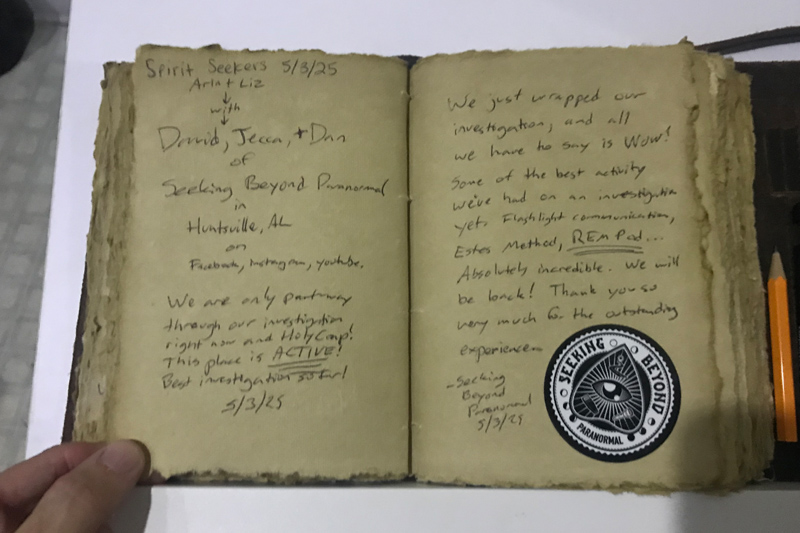 Spirit Seekers 5/3/25
Arin + Liz
with
David, Jecca, + Dan
of
Seeking Beyond Paranormal
in
Huntsville, AL
on
Facebook, Instagram, youtube.
We are only partway
through our investigation
right now and Holy Crap!
This place is ACTIVE!
Best investigation so far!
5/3/25
We just wrapped our
investigation, and all
we have to say is Wow!
Some of the best activity
we've had on an investigation
yet. Flashlight communication,
Estes Method, REM Pod...
Absolutely incredible. We will
be back! Thank you so
very much for the outstanding
experience
-Seeking
Beyond
Paranormal
5/3/25
SEEKING BEYOND
PARANORMAL